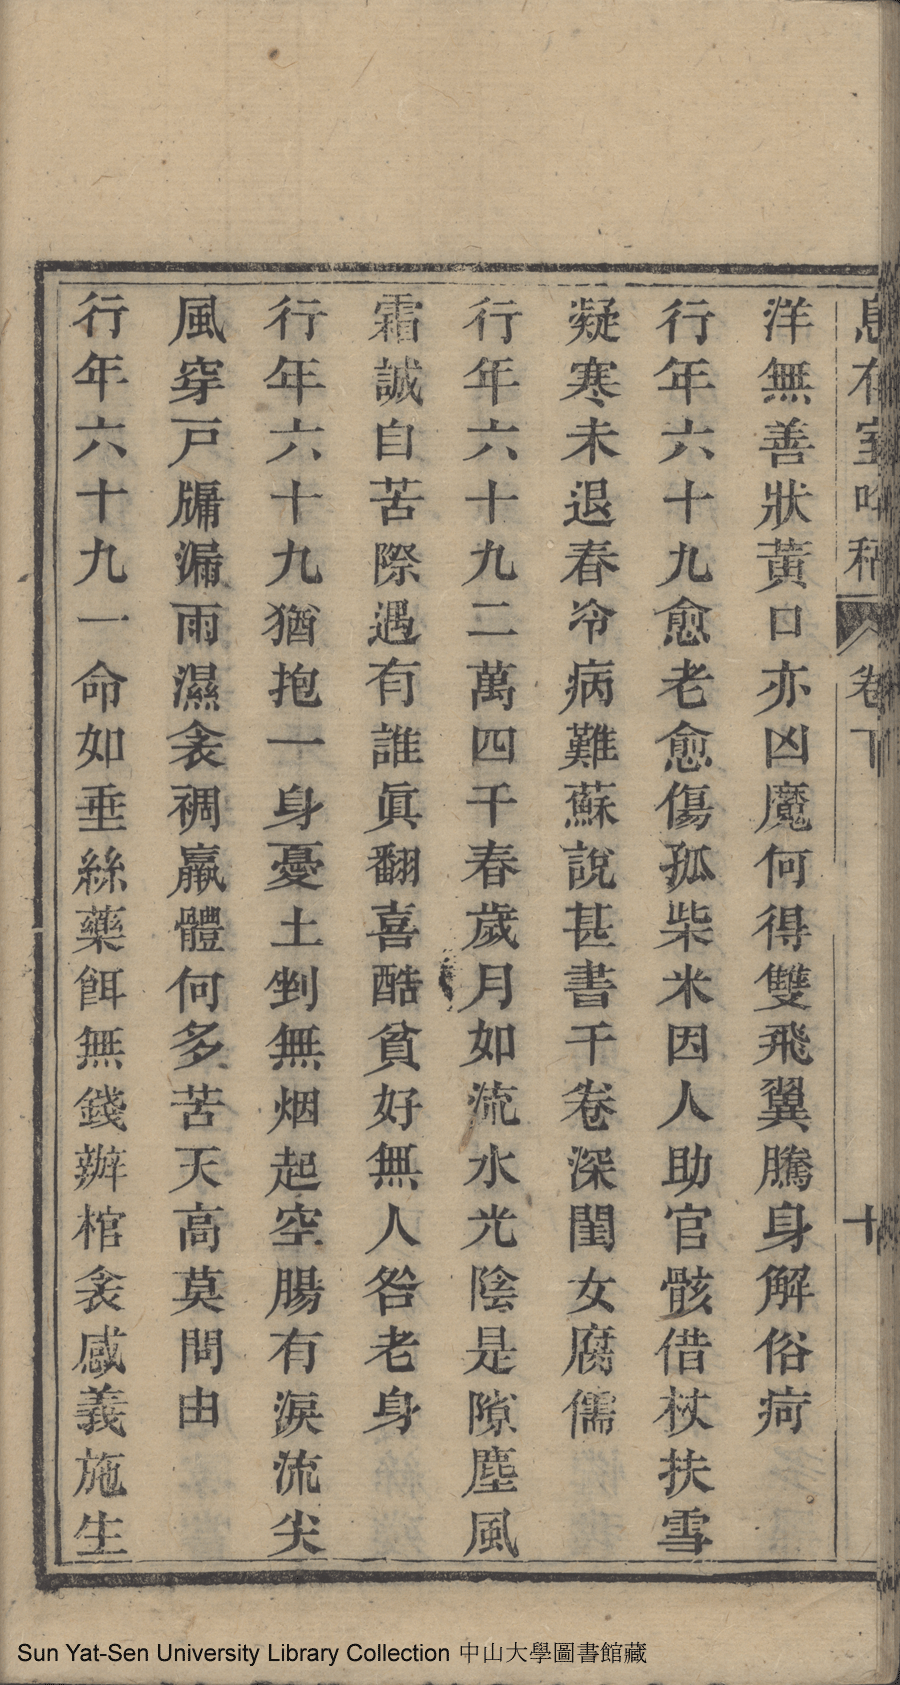 息存室吟稿 卷下 十
洋無善狀黃口亦凶魔何得雙飛翼騰身解俗疴
行年六十九愈老愈傷孤柴米因人助官骸借杖扶雪
凝寒未退春冷病難蘇說甚書千卷深閨女腐儒
行年六十九二萬四千春歲月如流水光陰是隙塵風
霜誠自苦際遇有誰眞翻喜酷貧好無人咎老身
行年六十九猶抱一身憂土剉無烟起空腸有淚流尖
風穿戸牗漏雨濕衾裯羸體何多苦天高莫問由
行年六十九一命如垂絲藥餌無錢辦棺衾感義施生
Sun Yat-Sen University Library Collection 中山大學圖書館藏